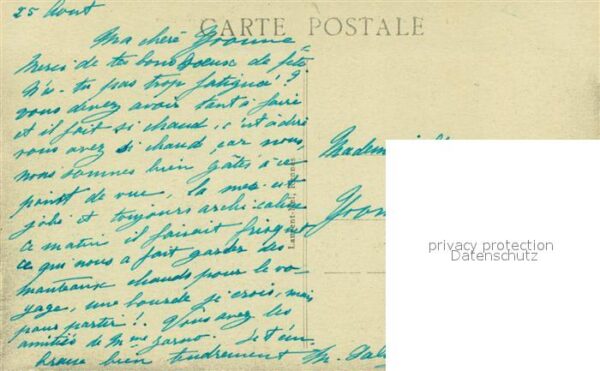 25 Aout
CARTE POSTALE
Ma chère Yvonne
Merci de tes bons voeux de fête
N'es-tu pas trop fatiguée!?
vous devez avoir tant à faire
et il fait si chaud, c'est à dire
vous avez si chaud car nous,
nous sommes bien gâtés à ce
point de vue, la mer est
jolie et toujours archi-calme
ce matin il faisait frisquet
ce qui nous a fait garder des
manteaux chauds pour le vo-
yage, une bourde je crois, mais
pour partir!. Vous avez les
amitiés de Mme Et t'em-
brasse bien tendrement M.
Yvon
privacy protection
Datenschutz